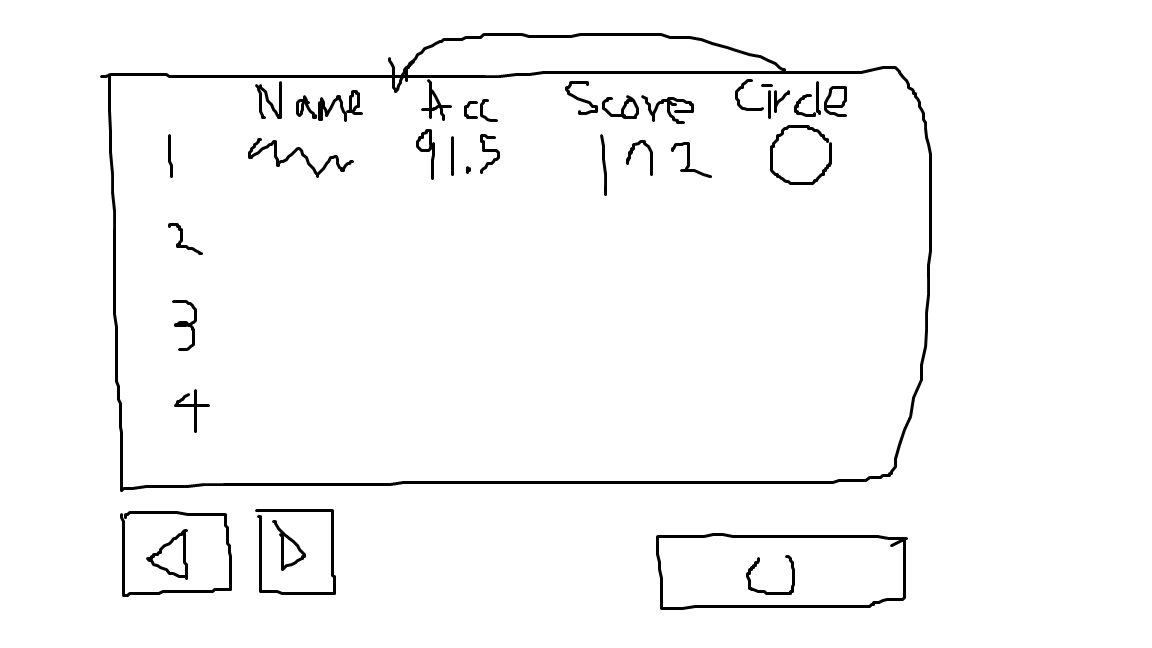 Name Acc Score Circle
1 91.5
2
3
4